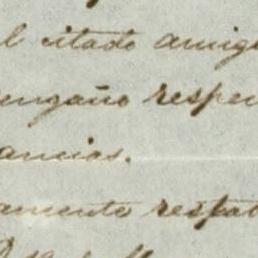 l citado amig
engaño respec
ancias.
amente respet